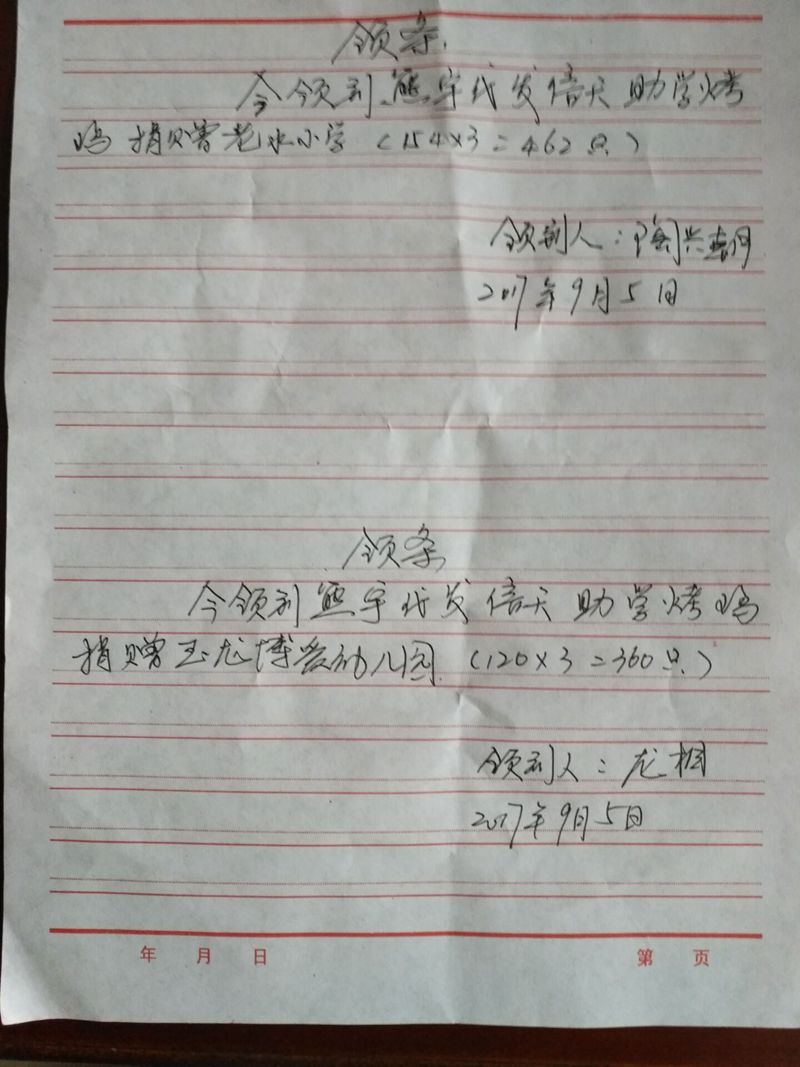 领条
今领到熊宇代发倍天助学烤
鸡捐赠老水小学（154×3=462只）
领到人：陶兴
2017年9月5日
领条
今领到熊宇代发倍天助学烤鸡
捐赠玉龙博爱幼儿园（120×3=360只）
领到人：龙桐
2017年9月5日
年 月 日 第 页